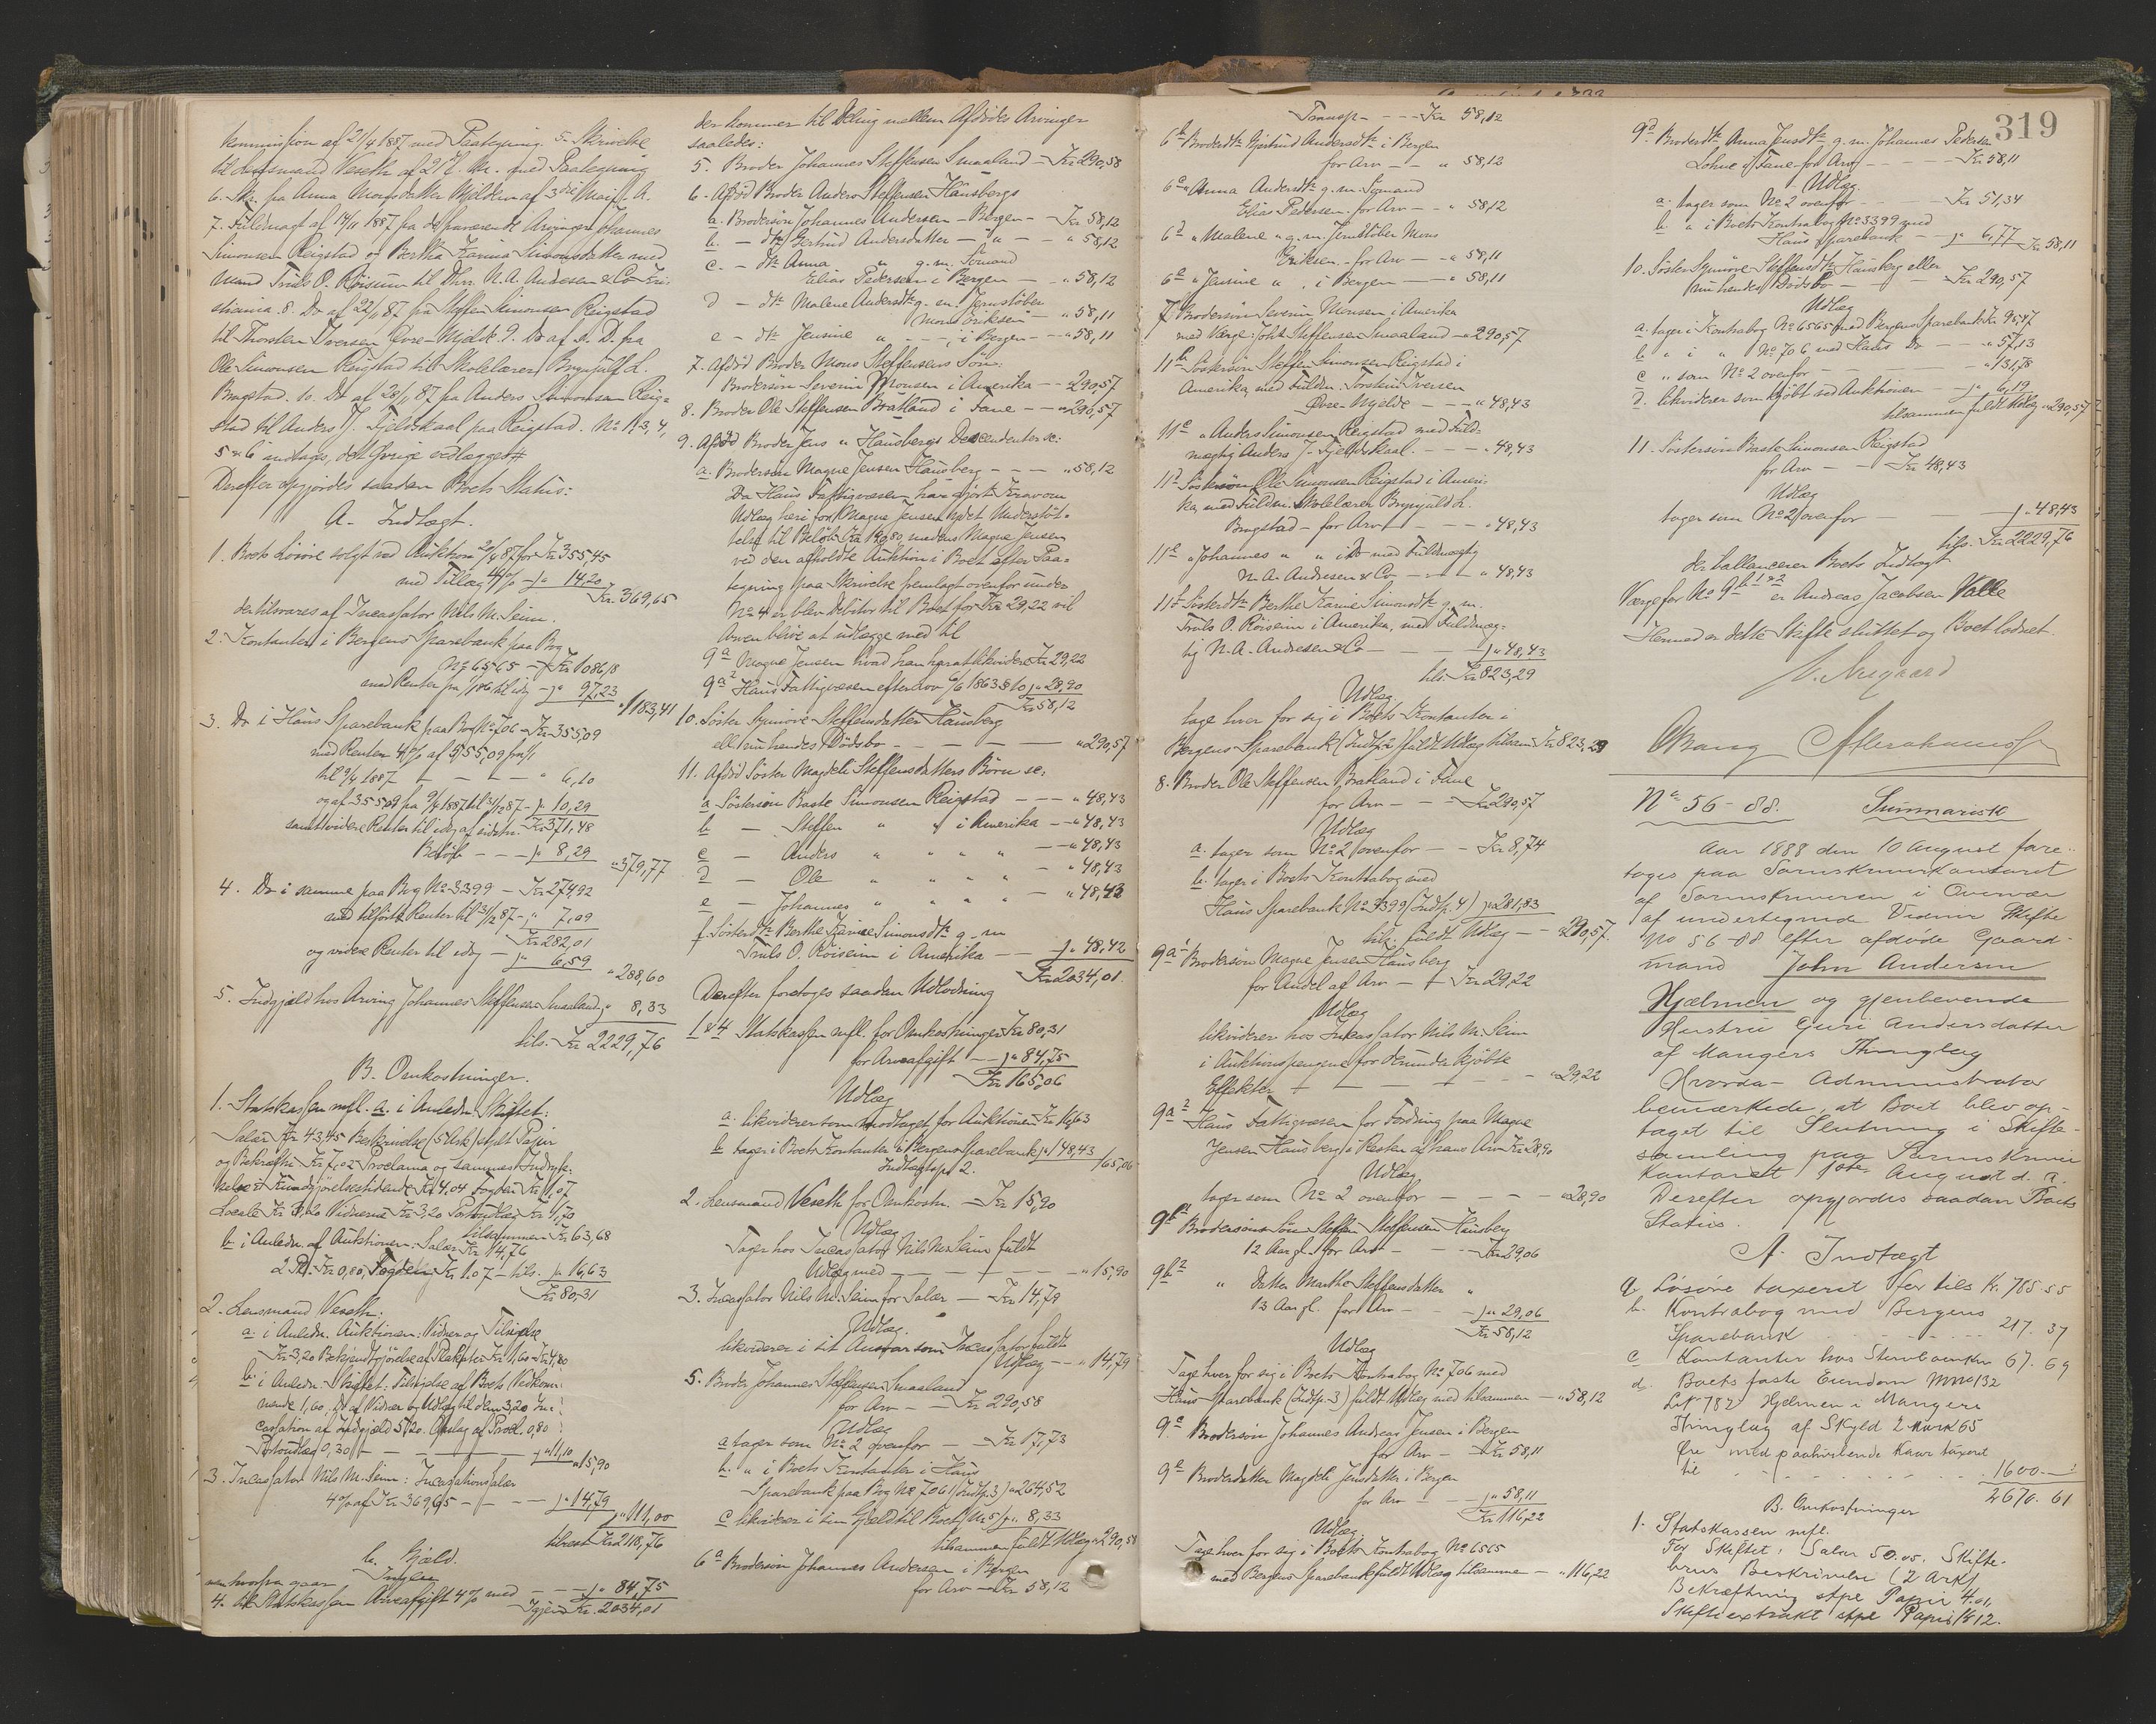 Kommission af 21/4 1887 med Paategning. 5. Skrivelse
til Lensmand Veseth af 2/7 f. A. med Paategning
6. Skr. fra Anna Monsdatter Mjelden af 3die Mai f. A.
7. Fuldmagt af 14/11 1887 fra de fraværende Arvinger Johannes
Simonsen Reigstad og Bertha Karine Simonsdatter med
Mand Truls O. Röiseim til Dhrr. N. A. Andresen & Co Kri-
stiania. 8. Do af 22/11 87 fra Steffen Simonsen Reigstad
til Thorsten Iversen Øvre-Mjelde 9. Do af s. D. fra
Ole Simonsen Reigstad til Skolelærer Brynjulf L.
Brugstad. 10. Do af 28/11 87 fra Anders Simonsen Reig-
stad til Anders J. Fjeldskaal paa Reigstad. No 1, 3, 4,
5 & 6 indtages, det Øvrige vedlægges
Derefter opgjordes saadan Boets Status:
A. Indtægt.
1. Boets Lösöre solgt ved Auktion 20/4 87 for Kr 355,45
med Tillæg 4% - " 14,20
Kr. 369,65
der tilsvares af Incassator Nils M. Seim.
2. Kontanter i Bergens Sparebank paa Bog
No 6565 - Kr 1086,18
med Renter fra 1/1 86 til idag - " 97,23
" 1183,41
3. Do i Haus Sparebank paa Bog No 706 - Kr 355,09
med Renter 4% af 555,09 fra 1/1
til 9/4 1887 - - - " 6,10
og af 355,09 fra 9/4 1887 til 31/12 87 - " 10,29
Kr 371,48
samt videre Renter til idag af sidstn.
Beløb - - - " 8,29
" 379,77
4. Do i samme paa Bog No 3399 - Kr 274,92
med tilførte Renter til 31/12 87 - " 7,09
Kr 282,01
og videre Renter til idag - " 6,59
" 288,60
5. Indgjæld hos Arving Johannes Steffensen Smaaland " 8,33
tils. Kr 2229,76
B. Omkostninger.
1. Statskassen mfl. a. i Anledn. Skiftet:
Salær Kr 43,45 Beskrivelse (5 Ark) stplt Papir
og Bekræftn Kr 7,02 Proclama og sammes Indryk-
kelse i Kundgjørelsestidende Kr 4,04 Fogden Kr 1,07
Locale Kr 3,20 Vidnerne Kr 3,20 Portoudlæg Kr 1,70
tilsammen Kr 63,68
b. i Anledn. af Auktionen: Salær Kr 14,76
2 Pl. Kr 0,80, Fogden Kr 1.07 - tils. " 16,63
Kr 80,31
2. Lensmand Veseth:
a. i Anledn. Auktionen: Vidner og Tilsigelse
Kr 3,20 Bekjendtgjørelse af Plakater Kr 1,60 - Kr 4,80
b. i Anledn. Skiftet: Tilsigelse af Boets Vedkom-
mende 1,60. Do af Vidner og Udlæg til dem 3,20 In-
cassation af Indgjæld 5,20. Opslag af Procl. 0,80
Portoudlæg 0,30 - - - " 11,10
" 15,90
3. Incassator Nils M. Seim: Incassationssalær
4% af Kr 369,65 - - - " 14,79
" 111,00
tilrest Kr 2118,76
b. Gjæld.
Ingen
hvorfra gaar
4. til Statskassen Arveafgift 4% med - - - " 84,75
Igjen Kr. 2034,01
der kommer til Deling mellem Afdödes Arvinger
saaledes:
5. Broder Johannes Steffensen Smaaland - Kr 290,58
6. Afdöd Broder Anders Steffensen Hausbergs
a. Brodersön Johannes Andersen - Bergen - Kr 58,12
b. - dtr Gjertrud Andersdatter - " - " 58,12
c. - dtr Anna " g. m. Sömand
Elias Pedersen i Bergen - " 58,12
d - dtr Malene Andersdtr g. m. Jernstöber
Mons Eriksen - " 58,11
e - dtr Jensine " - - i Bergen - " 58,11
7. Afdöd Broder Mons Steffensens Sön:
Brodersön Severin Monsen i Amerika - - 290,57
8. Broder Ole Steffensen Bratland i Fane - - " 290,57
9. Afdöd Broder Jens " Hausbergs Descendenter se:
a. Brodersön Magne Jensen Hausberg - - - " 58,12
Da Haus Fattigvæsen har gjort Krav om
Udlæg heri for Magne Jensen ydet Understöt-
telse til Belöb Kr 190,80, medens Magne Jensen
ved den afholdte Auktion i Boet efter Paa-
tegning paa Skrivelse fremlagt ovenfor under
No 4 er blev Debitor til Boet for Kr 29,22 vil
Arven blive at udlægge med til
9a1 Magne Jensen hvad han har at likvidere Kr 29,22
9a2 Haus Fattigvæsen efter Lov 6/6 1863 § 10 " 28,90
Kr 58,12
10. Söster Synnöve Steffensdatter Hausberg
ell. nu hendes Dödsbo - - - " 290,57
11. Afdöd Söster Magdeli Steffensdatters Börn se:
a Söstersön Baste Simonsen Reigstad - - - " 48,43
b - Steffen " " i Amerika - - " 48,43
c - Anders " " " " - - " 48,43
d - Ole " " " " - " 48,43
e - Johannes " " " " - " 48,43
f. Sösterdtr Berthe Karine Simonsdtr g. m
Truls O. Röiseim i Amerika - - " 48,42
Kr 2034,01.
Derefter foretoges saadan Udlodning
1 & 4 Statskassen mfl. for Omkostninger Kr 80,31
for Arveafgift - - " 84,75
Kr 165,06
Udlæg
a. likviderer som modtaget for Auktionen Kr 16,63
b tager i Boets Kontanter i Bergens Sparebank " 148,43
Indtægtspt 2. 165,06
2. Lensmand Veseth for Omkostn. - Kr 15,90
Udlæg
Tager hos Incassator Nils M. Seim fuldt
Udlæg med - - - " 15,90
3. Incassator Nils M. Seim for Salær - Kr 14,79
Udlæg.
likviderer i sit Ansvar som Incassator fuldt
Udlæg - - " 14,79
5. Broder Johannes Steffensen Smaaland
for Arv - Kr 290,58
Udlæg
a tager som No 2 ovenfor - Kr 17,73
b. " i Boets Kontanter i Haus
Sparebank paa Bog No 706 (Indtp. 3) " 264,52
c likviderer i sin Gjæld til Boet (No 5) " 8,33
tilsammen fuldt Udlæg " 290,58
6a Brodersön Johannes Andersen i Bergen
for Arv - Kr 58,12
Transp - - - Kr 58,12
6b Broderdtr Gjertrud Andersdtr i Bergen
for Arv - - " 58,12
6c " Anna Andersdtr g. m. Sömand
Elias Pedersen. for Arv - - " 58,12
6d " Malene " g. m. Jernstöber Mons
Eriksen. - for Arv - - " 58,11
6e " Jensine " , i Bergen - - " 58,11
7 Brodersön Severin Monsen i Amerika
med Værge: Johs Steffensen Smaaland - " 290,57
11b Söstersön Steffen Simonsen Reigstad i
Amerika, med Fuldm. Torstein Iversen
Øvre-Mjelde - - - " 48,43
11c " Anders Simonsen Reigstad med Fuld-
mægtig Anders J. Fjeldskaal. - - - " 48,43
11d Söstersön Ole Simonsen Reigstad i Ameri-
ka, med Fuldm. Skolelærer Brynjulf L.
Brugstad - for Arv - - - " 48,43
11e " Johannes " " i Do med Fuldmægtig
N. A. Andresen & Co - - - " 48,43
11f Sösterdtr Berthe Karine Simonsdtr g. m.
Truls O. Röiseim i Amerika, med Fuldmæg-
tig N. A. Andresen & Co - - - " 48,43
tils. Kr 823,29
Udlæg
tage hver for sig i Boets Kontanter i
Bergens Sparebank (Indtp. 2) fuldt Udlæg tilsam. Kr 823,29
8. Broder Ole Steffensen Bratland i Fane
for Arv - - Kr 290,57
Udlæg
a. tager som No 2 ovenfor - - Kr 8,74
b. tager i Boets Kontrabog med
Haus Sparebank No 3399 (Indtp. 4) " 281,83
tils. fuldt Udlæg - - " 290,57.
9a1 Brodersön Magne Jensen Hausberg
for Andel af Arv - - Kr 29,22
Udlæg
likviderer hos Incassator Nils M. Seim
i Auktionspengene for derunder kjøbte
Effekter - - - " 29,22
9a2 Haus Fattigvæsen for Fordring paa Magne
Jensen Hausberg i Resten af hans Arv Kr 28,90
Udlæg
tager som No 2 ovenfor - - - - " 28,90
9b1 Brodersöns Sön Steffen Steffensen Hausberg
12 Aar gl. for Arv - - - Kr 29,06
9b2 " Datter Martha Steffensdatter "
13 Aar gl. for Arv - - " 29,06
Kr 58,12
Udlæg
Tage hver for sig i Boets Kontrabog No 706 med
Haus Sparebank (Indtp. 3) fuldt Udlæg med tilsammen - " 58,12
9c Brodersön Johannes Andreas Jensen i Bergen
for Arv - Kr 58,11
9e Broderdatter Magdeli Jensdatter i Bergen
for Arv - - " 58,11
Kr 116,22
Udlæg
Tage hver for sig i Boets Kontrabog No 6565
med Bergens Sparebank fuldt Udlæg tilsammen - " 116,22
319
9d Broderdtr Anna Jensdtr g. m. Johannes Pedersen
Lohne i Fane for Arv - - - Kr 58,11
Udlæg
a. tager som No 2 ovenfor - - Kr 51,34
b. " i Boets Kontrabog No 3399 med
Haus Sparebank - - " 6,77
Kr 58,11
10. Söster Synnöve Steffensdtr Hausberg eller
nu hendes Dödsbo - - - Kr 290,57
Udlæg
a. tager i Kontrabog No 6565 med Bergens Sparebank Kr 95,47
b. " i " No 706 med Haus Do - - - " 57,13
c " som No 2 ovenfor - - - " 131,78
d. likviderer som kjöbt ved Auktionen - " 6,19
tilsammen fuldt Udlæg " 290,57
11. Söstersön Baste Simonsen Reigstad
for Arv - - Kr 48,43
Udlæg
tager som No 2 ovenfor " 48,43
tils. Kr 2229,76
der ballancerer Boets Indtægt
Værge for No 9b 1 & 2 er Andreas Jacobsen Valle
Hermed er dette Skifte sluttet og Boet lodnet.
No 56-88. Summarisk
Aar 1888 den 10 August fore-
toges paa Sorenskriverkontoret
af Sorenskriveren i Overvær
af undertegnede Vidner Skifte
No 56-88 efter afdøde Gaard-
mand John Andersen
Hjelmen og gjenlevende
Hustru Guri Andersdatter
af Mangers Thinglag
Hvorda - Administrator
bemærkede, at Boet blev op-
taget til Slutning i Skifte-
samling paa Sorenskriver
kontoret 10de August d. A.
Derefter opgjordes saadan Boets
Status.
A. Indtægt
a Løsøre taxeret for tils Kr. 785 55
b. Kontrabog med Bergens
Sparebank . . . . . 217. 37
c Kontanter hos Sterbøenken 67. 69
d. Boets faste Eiendom Mno 132
LNo 782 Hjelmen i Mangers
Thinglag af Skyld 2 Mark 65
Øre med paahvilende Kaar taxeret
til . . . . . 1600 -
2670. 61
B. Omkostninger
1. Statskassen mfl.
For Skiftet: Salær 50.05. Skifte-
brevs Beskrivelse (2 Ark)
Bekræftning stpl Papir 4.01,
Skifteextrakt stpl Papir 1812.